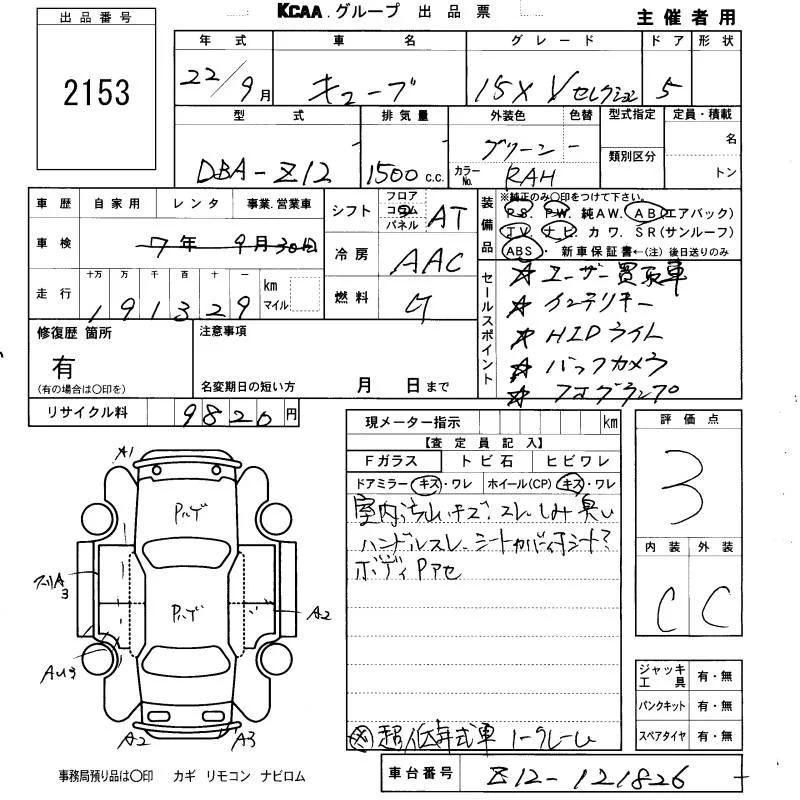 KCAA.グループ 出品票
主催者用
出品番号
2153
年式 車名 グレード ドア 形状
22/9月 キューブ 15X Vセレクション 5
型式 排気量 外装色 色替 型式指定 定員・積載
DBA-Z12 1500 c.c. グリーン - 名
カラーNo. RAH 類別区分 トン
車歴 自家用 レンタ 事業.営業車
車検 7年 9月30日
走行 十万 万 千 百 十 一 km マイル
191329
シフト フロア コラム パネル AT
冷房 AAC
燃料 ガ
装備品 ※純正のみ〇印をつけて下さい。
PS. PW. 純AW. AB(エアバック)
TV. ナビ. カワ. SR(サンルーフ)
ABS・新車保証書←(注)後日送りのみ
セールスポイント
☆ ユーザー買取車
☆ インテリキー
☆ HIDライト
☆ バックカメラ
☆ フォグランプ
修復歴 箇所
有
(有の場合は〇印を)
注意事項
名変期日の短い方 月 日まで
リサイクル料 9820円
現メーター指示 km
【査定員記入】
Fガラス トビ石 ヒビワレ
ドアミラー キズ・ワレ ホイール(CP) キズ・ワレ
室内汚れ キズ スレ しみ 臭い
ハンドルスレ シート
ボディPアセ
超低年式車 ノークレーム
評価点
3
内装 外装
C C
ジャッキ工具 有・無
パンクキット 有・無
スペアタイヤ 有・無
A1
Pハゲ
Pハゲ
A3
A2
AU3
A2 A3
事務局預り品は〇印 カギ リモコン ナビロム
車台番号 Z12-121826